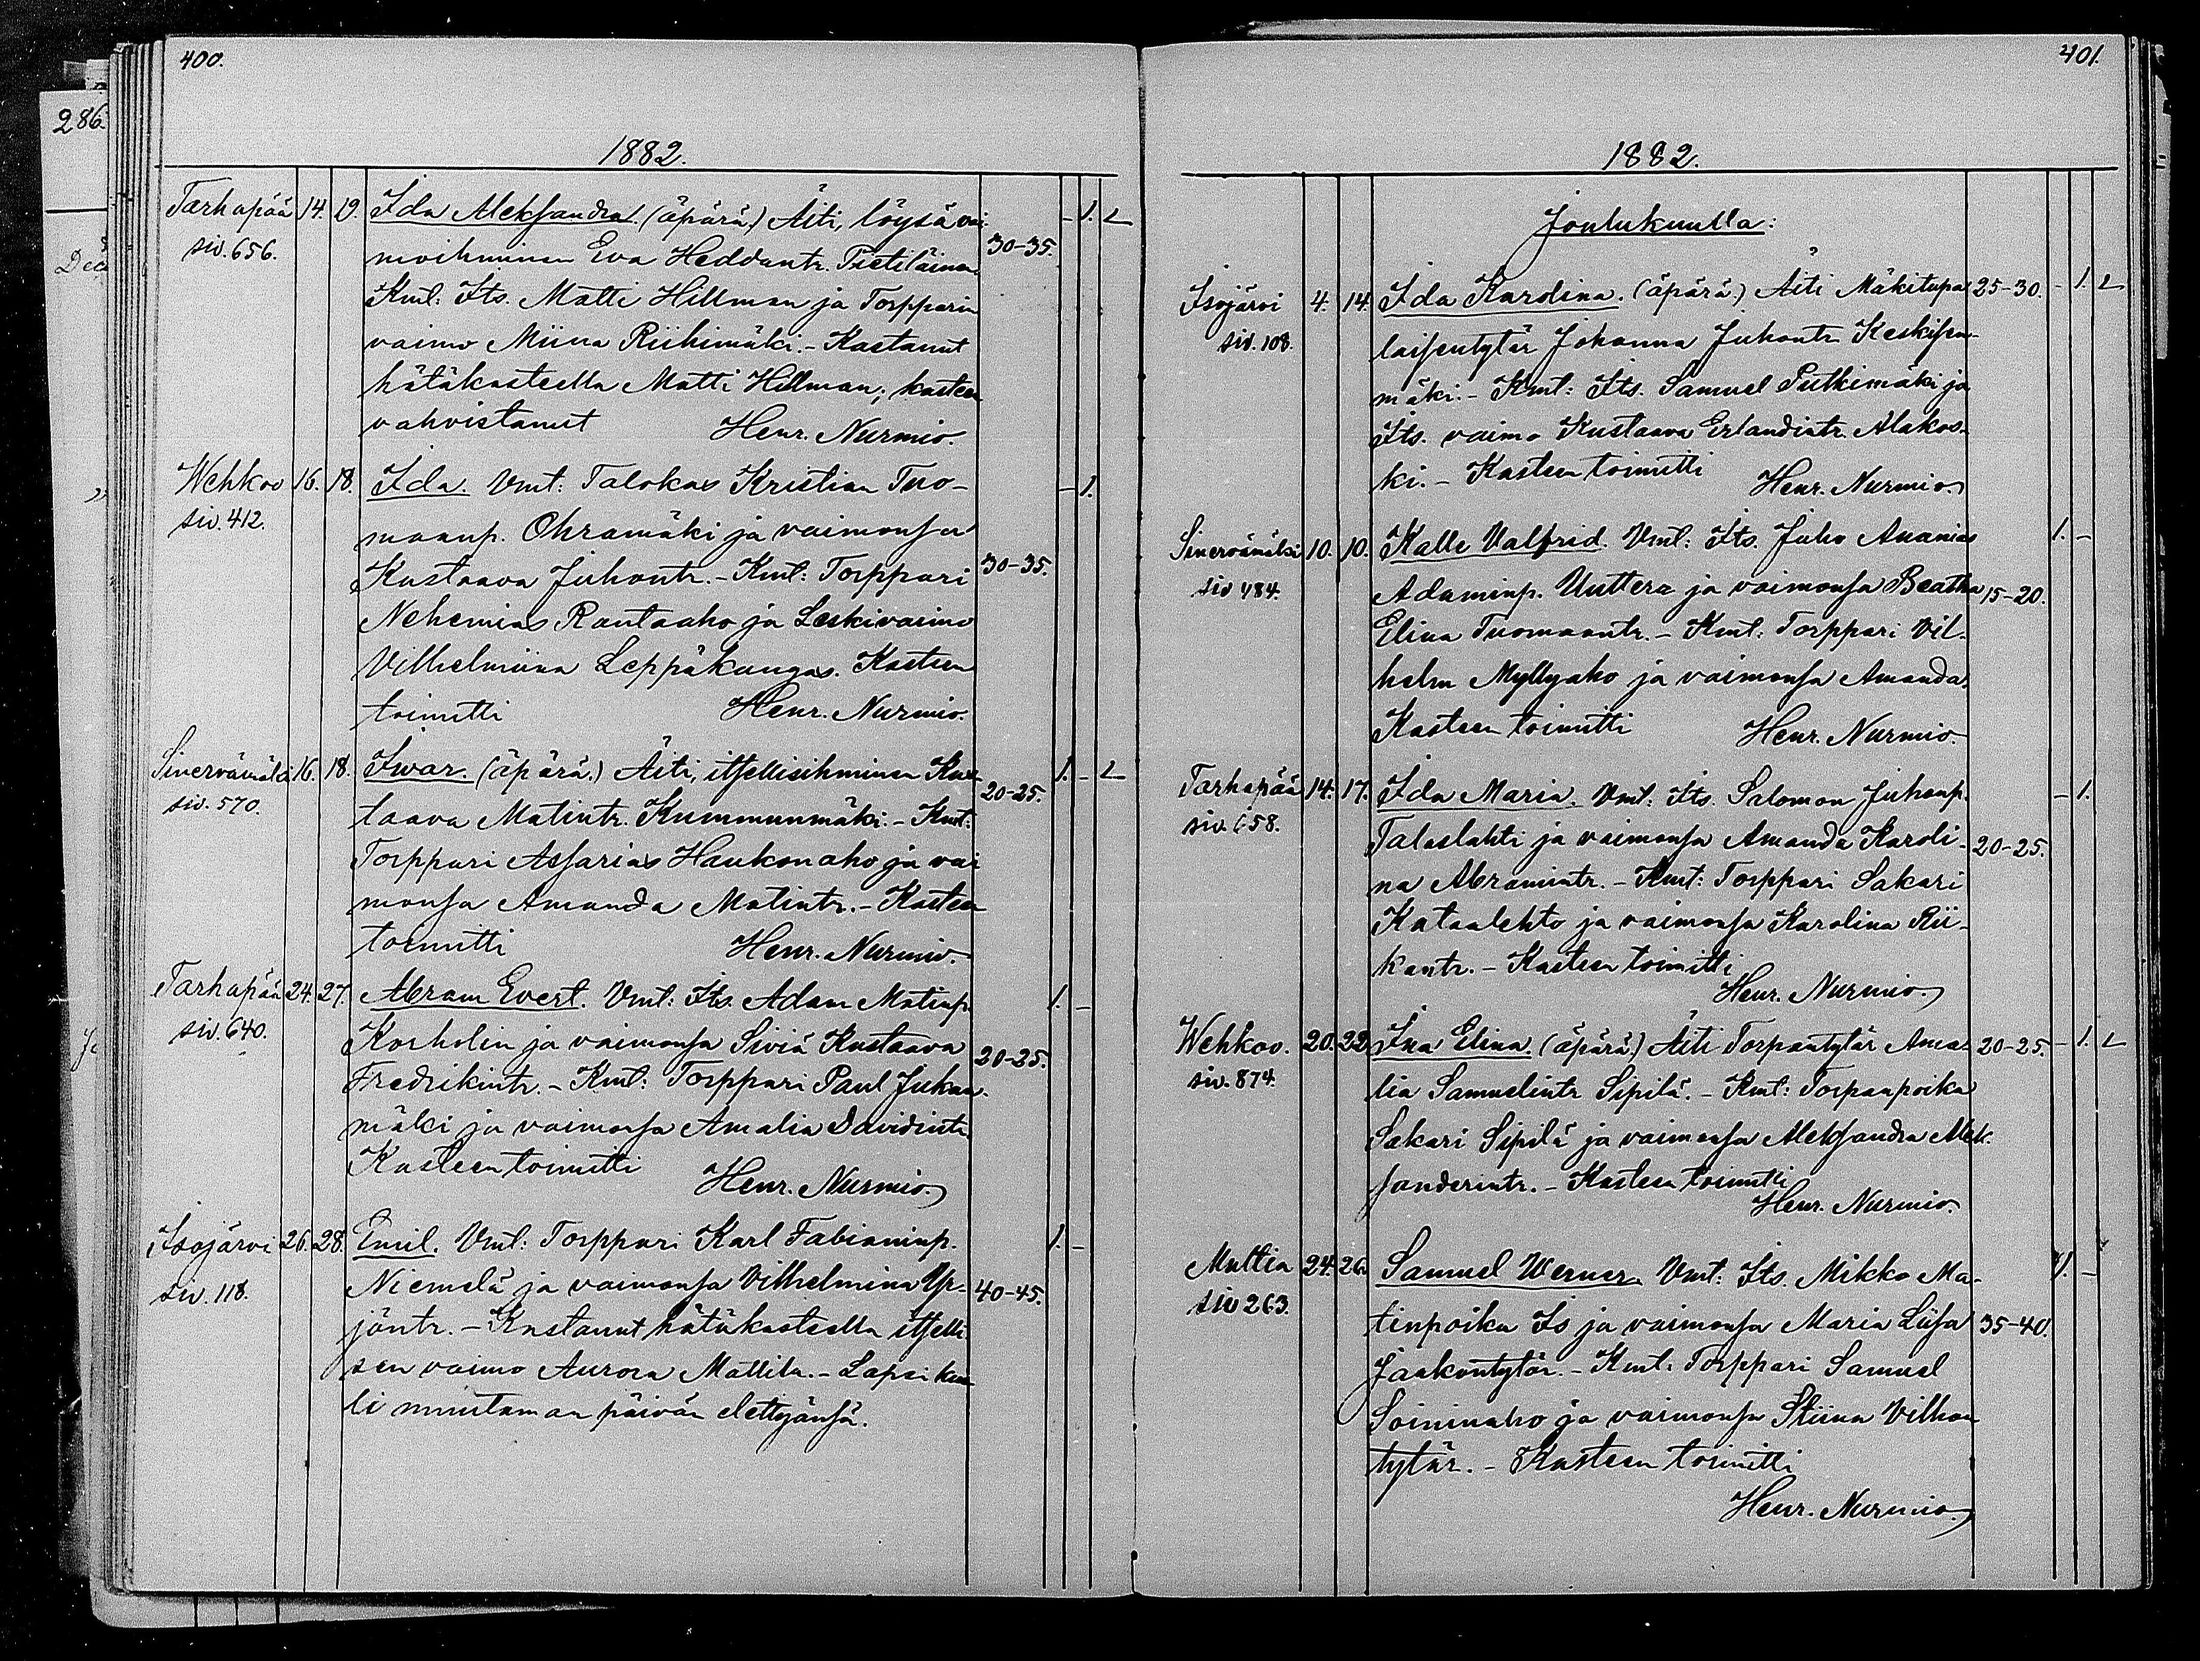 400.
286.
1882.
Tarhapää 14. 19. Ida Aleksandra (äpärä.) Äiti, löysä vai- - 1. L
siv. 656. moihminen Eva Heddantr. Tietiläinen 30-35.
Kml: Its. Matti Hillman ja Torpparin
vaimo Miina Riihimäki. - Kastanut
hätäkasteella Matti Hillman, kasteen
vahvistanut Henr. Nurmio.
Wehkoo 16. 18. Ida. Vmt: Talokas Kristian Tuo- - 1.
siv. 412. maanp. Ohramäki ja vaimonsa
Kustaava Juhontr. - Kmt: Torppari 30-35.
Nehemias Rantaaho ja Leskivaimo
Vilhelmiina Leppäkangas. Kasteen
toimitti Henr. Nurmio.
Sinervämäki 16. 18. Iwar. (äpärä.) Äiti, itsellisihminen Kus- 1. - L
siv. 570. taava Matintr. Kummunmäki. - Kmt: 20-25.
Torppari Assarias Haukonaho ja vai
monsa Amanda Matintr. - Kasteen
toimitti Henr. Nurmio.
Tarhapää 24. 27. Abram Evert. Vmt: Its. Adam Matinp. 1. -
siv. 640. Korholin ja vaimonsa Siviä Kustaava 20-25.
Fredrikintr. - Kmt: Torppari Paul Juhan-
mäki ja vaimonsa Amalia Davidintr.
Kasteen toimitti Henr. Nurmio.
Isojärvi 26. 28. Emil. Vmt: Torppari Karl Fabianinp. 1. -
siv. 118. Niemelä ja vaimonsa Vilhelmina Yr- 40-45.
jöntr. - Kastanut hätäkasteella itselli-
sen vaimo Aurora Mattila. - Lapsi kuo-
li muutaman päivän elettyänsä.
401.
1882.
Joulukuulla:
Isojärvi 4. 14. Ida Karolina. (äpärä.) Äiti Mäkitupa 25-30. - 1. L
siv. 108. laisentytär Johanna Juhontr. Keskisen-
mäki. - Kmt: Its. Samuel Putkimäki ja
Its. vaimo Kustaava Erlandintr. Alakos-
ki. - Kasteen toimitti Henr. Nurmio.
Sinervämäki 10. 10. Kalle Valfrid. Vmt: Its. Juho Ananias 1. -
siv 484. Adaminp. Uuttera ja vaimonsa Beatha 15-20.
Elina Tuomaantr. - Kmt: Torppari Vil-
helm Myllyaho ja vaimonsa Amanda.
Kasteen toimitti Henr. Nurmio.
Tarhapää 14. 17. Ida Maria. Vmt: Its. Salomon Juhonp. - 1.
siv. 658. Talaslahti ja vaimonsa Amanda Karoli- 20-25.
na Abramintr. - Kmt: Torppari Sakari
Kataalehto ja vaimonsa Karolina Rii-
kantr. - Kasteen toimitti
Henr. Nurmio.
Wehkoo. 20. 22. Ina Elina. (äpärä.) Äiti Torpantytär Ama- 20-25. - 1. L
siv. 874. lia Samuelintr Sipilä. - Kmt: Torpanpoika
Sakari Sipilä ja vaimonsa Aleksandra Alek-
sanderintr. - Kasteen toimitti
Henr. Nurmio.
Multia 24. 26. Samuel Werner. Vmt: Its. Mikko Ma- 1. -
siv 263. tinpoika Is ja vaimonsa Maria Liisa 35-40.
Jaakontytär. - Kmt: Torppari Samuel
Soininaho ja vaimonsa Stiina Vilhon
tytär. - Kasteen toimitti
Henr. Nurmio.